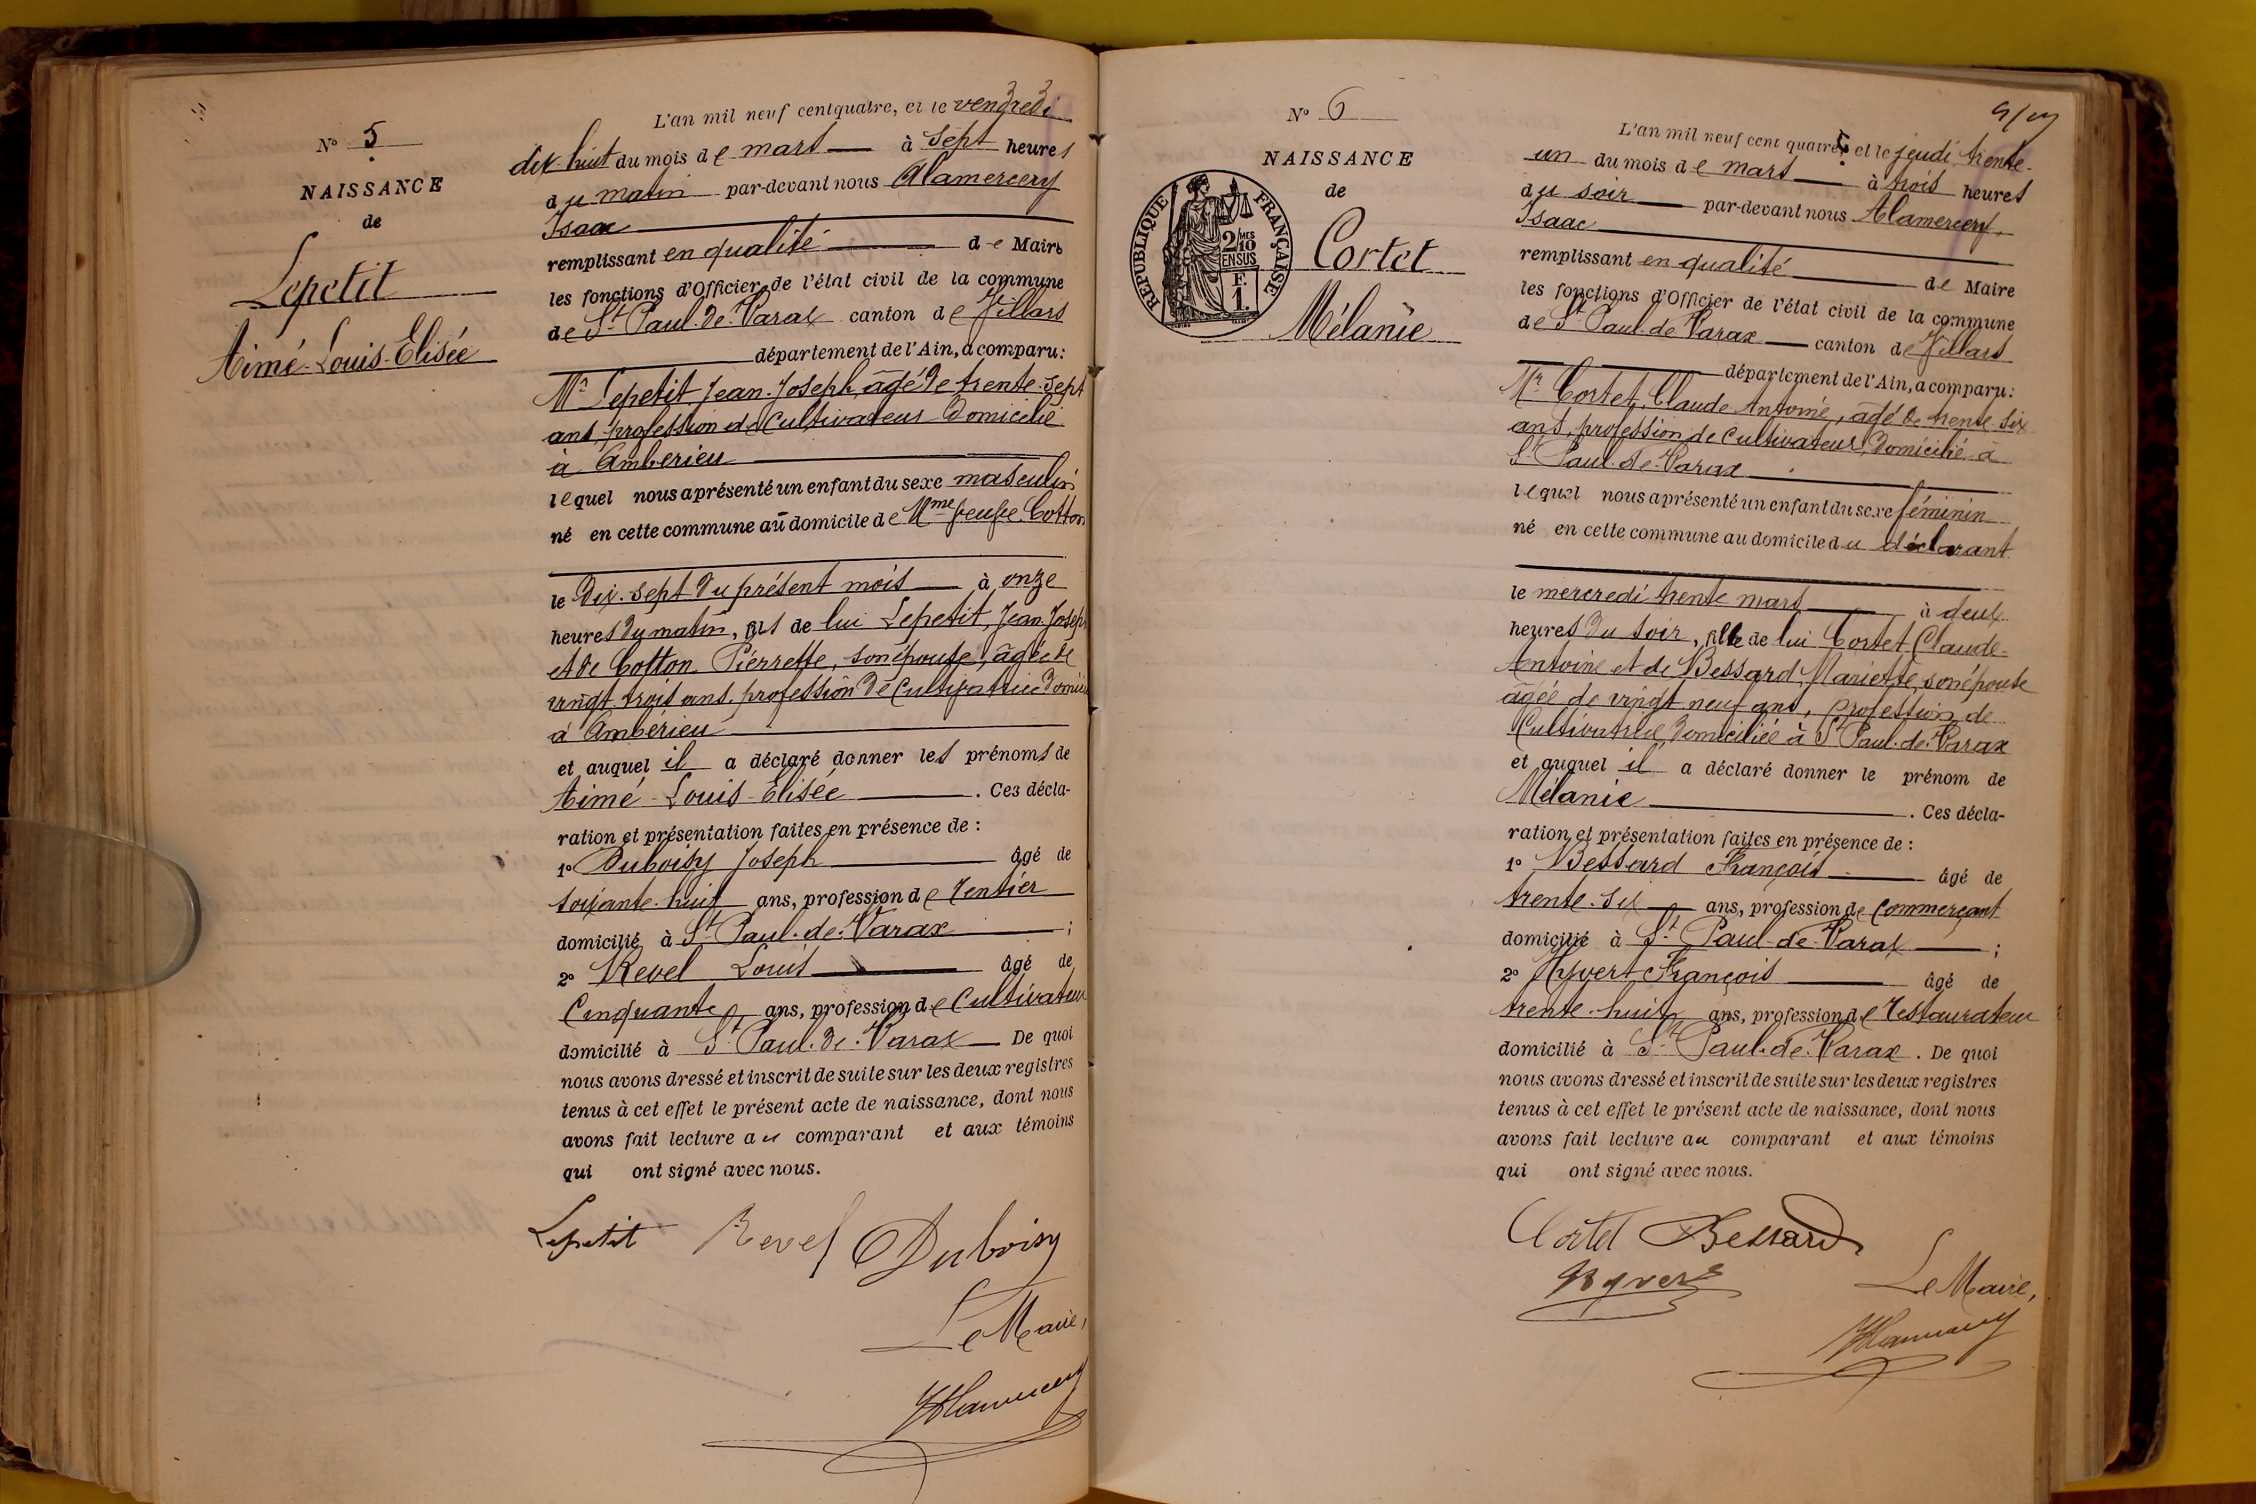 N° 5
NAISSANCE
de
Lepetit
Aimé-Louis-Elisée
L'an mil neuf cent quatre, et le vendredi
dix-huit du mois de mars à sept heures
du matin par-devant nous Alamercery
Isaac
remplissant en qualité de Maire
les fonctions d'Officier de l'état civil de la commune
de St Paul-de-Varax canton de Villars
département de l'Ain, a comparu:
Mr Lepetit Jean-Joseph, âgé de trente-sept
ans, profession de Cultivateur domicilié
à Ambérieu
lequel nous a présenté un enfant du sexe masculin
né en cette commune au domicile de Mme veuve Cotton
le dix-sept du présent mois à onze
heures du matin, fils de lui Lepetit, Jean-Joseph
et de Cotton Pierrette, son épouse, âgée de
vingt-trois ans, profession de Cultivatrice domici
à Ambérieu
et auquel il a déclaré donner les prénoms de
Aimé-Louis-Elisée. Ces décla-
ration et présentation faites en présence de :
1° Duboisy Joseph âgé de
soixante-huit ans, profession de rentier
domicilié à St Paul-de-Varax ;
2° Revel Louis âgé de
Cinquante ans, profession de Cultivateur
domicilié à St Paul-de-Varax De quoi
nous avons dressé et inscrit de suite sur les deux registres
tenus à cet effet le présent acte de naissance, dont nous
avons fait lecture au comparant et aux témoins
qui ont signé avec nous.
Lepetit Revel Duboisy
Le Maire,
N° 6
NAISSANCE
de
RÉPUBLIQUE FRANÇAISE
2/10 MES
EN SUS
F.
1.
Cortet
Mélanie
L'an mil neuf cent quatre, et le jeudi trente-
un du mois de mars à trois heures
du soir par-devant nous Alamercery
Isaac
remplissant en qualité de Maire
les fonctions d'Officier de l'état civil de la commune
de St Paul-de-Varax canton de Villars
département de l'Ain, a comparu:
Mr Cortet, Claude Antoine, âgé de trente-six
ans, profession de Cultivateur, domicilié à
St Paul-de-Varax
lequel nous a présenté un enfant du sexe féminin
né en cette commune au domicile du déclarant
le mercredi trente mars à deux
heures du soir, fille de lui Cortet Claude-
Antoine et de Bessard, Mariette, son épouse
âgée de vingt neuf ans, profession de
Cultivatrice domiciliée à St Paul-de-Varax
et auquel il a déclaré donner le prénom de
Mélanie. Ces décla-
ration et présentation faites en présence de :
1° Bessard François âgé de
trente-six ans, profession de Commerçant
domicilié à St Paul-de-Varax ;
2° Hyvert François âgé de
trente-huit ans, profession de restaurateur
domicilié à St Paul-de-Varax. De quoi
nous avons dressé et inscrit de suite sur les deux registres
tenus à cet effet le présent acte de naissance, dont nous
avons fait lecture au comparant et aux témoins
qui ont signé avec nous.
Cortet Bessard
Hyvert
Le Maire,